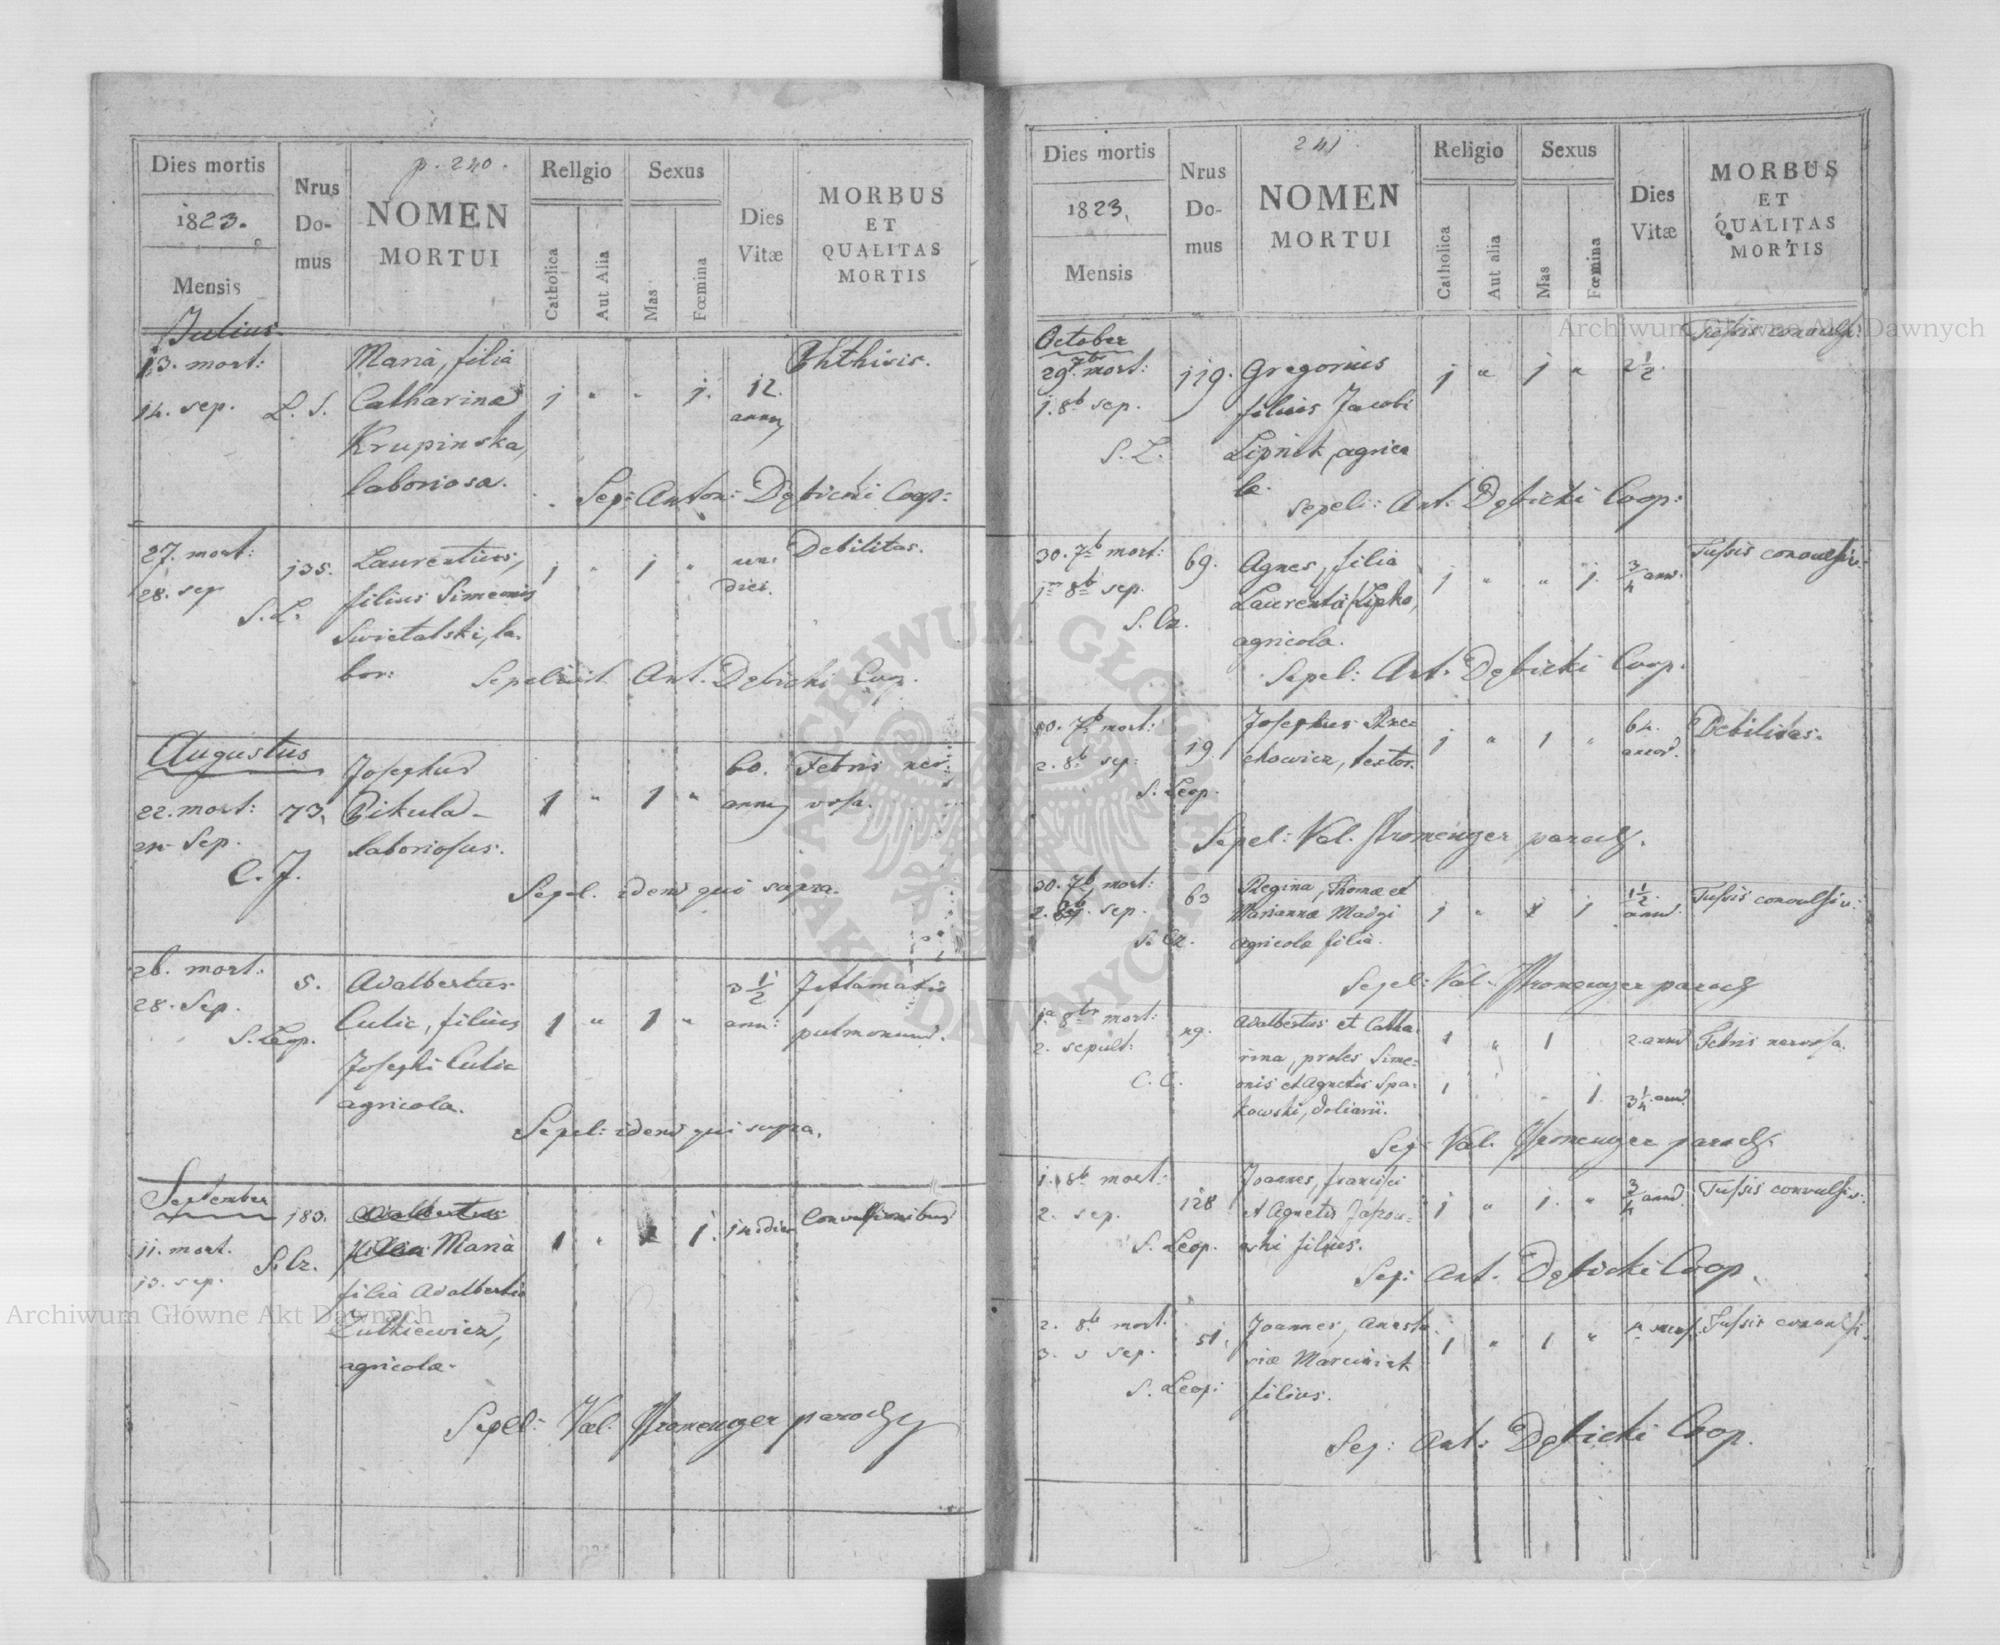 Dies mortis
1823.
Mensis
Nrus
Do-
mus
p. 240.
NOMEN
MORTUI
Rellgio
Catholica
Aut Alia
Sexus
Mas
Fœmina
Dies
Vitæ
MORBUS
ET
QUALITAS
MORTIS
Julius.
13. mort: Maria, filia Phthisis.
14. sep. Catharina 1 " " 1. 12.
Krupinska,
laboriosa.
Sep: Anton: Dębicki Coop:
27. mort: 135. Laurentius, 1 " 1 " Debilitas.
28. sep filius Simeonis dici.
S. L. Swietalski, la-
bor:
Sepelivit Ant. Dębicki Coop.
Augustus Josephus 60. Febris ner-
22. mort: 73. Pikula 1 " 1 " vosa.
24. Sep. laboriosus.
C. J.
Sepel. idem qui supra.
26. mort. 5. Adalbertus 3 1/2
28. Sep. Culic, filius 1 " 1 " ann: pulmonum.
S. Leop. Josephi Culic
agricola.
Sepel: idem qui supra.
September 183. Adalbertus Convulsionibus
11. mort. Maria 1 " 1. 14 dies
13. sep. S. Cr. filia Adalberti
Zulkiewicz,
agricolæ.
Sepel: Val.
Dies mortis
1823.
Mensis
Nrus
Do-
mus
241
NOMEN
MORTUI
Religio
Catholica
Aut alia
Sexus
Mas
Fœmina
Dies
Vitæ
MORBUS
ET
QUALITAS
MORTIS
October Tussis convuls:
29. 7br mort: 119. Gregorius 1 " 1 " 2 1/2.
1. 8b sep. filius Jacobi
S. L. Lipnik, agrico
la.
Sepeli: Ant. Dębicki Coop:
30. 7b mort: 69. Agnes, filia 1 " " 1. 3/4 ann. Tussis convulsiv:
1m 8b sep. Laurentii Lipko,
S. Cr. agricola.
Sepel: Ant. Dębicki Coop.
30. 7b mort: 19. Josephus 1 " 1 " 64. Debilitas.
2. 8b sep: textor.
S. Leop.
Sepel: Val. paroch.
30. 7b mort: 63 Regina, Thomæ et 1 " 1 1 1/2. Tussis convulsiv:
2. sep. Mariannæ Madej ann.
S. Cr. Agricolæ filia.
Sepel: Val. paroch
1a 8br mort: Adalbertus et Catha- 1 " 1 2. ann Febris nervosa.
2. sepult: rina, proles Sime-
C. C. onis et Agnetis Spa- 1 1. 3 1/4. ann.
kowski, doliarii.
Sep: Val. paroch.
1. 8b mort: 128 Joannes, Francisci 1 " 1. " 3/4 ann. Tussis convulsiv:
2. sep. et Agnetis
S. Leop. filius.
Sep: Ant. Dębicki Coop.
2. 8b mort. 51. Joannes, Anasta- 1 " 1 " Tussis convulsi.
3. " sep. siæ Marciniek
S. Leop: filius.
Sep: Ant: Dębicki Coop.
ARCHIWUM GŁÓWNE AKT DAWNYCH
Archiwum Główne Akt Dawnych
Archiwum Główne Akt Dawnych